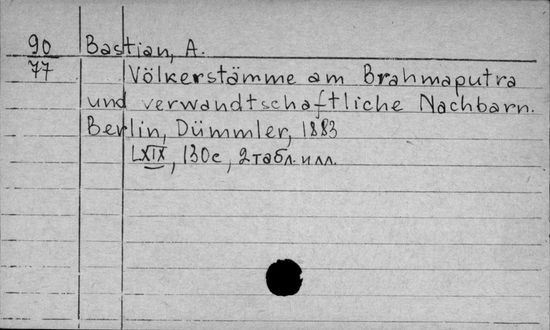 90
77
Bastian, A.
Völkerstämme am Brahmaputra
und verwandtschaftliche Nachbarn.
Berlin, Dümmler, 1883
LXIX, 130 с, 2 табл. илл.